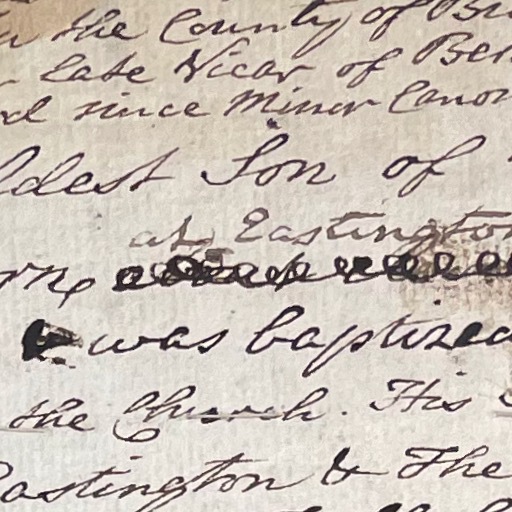 the County of
late Vicar of
since Minor Canon
ldest Son of
at Eastington
was baptized
the Church. His
Eastington & The